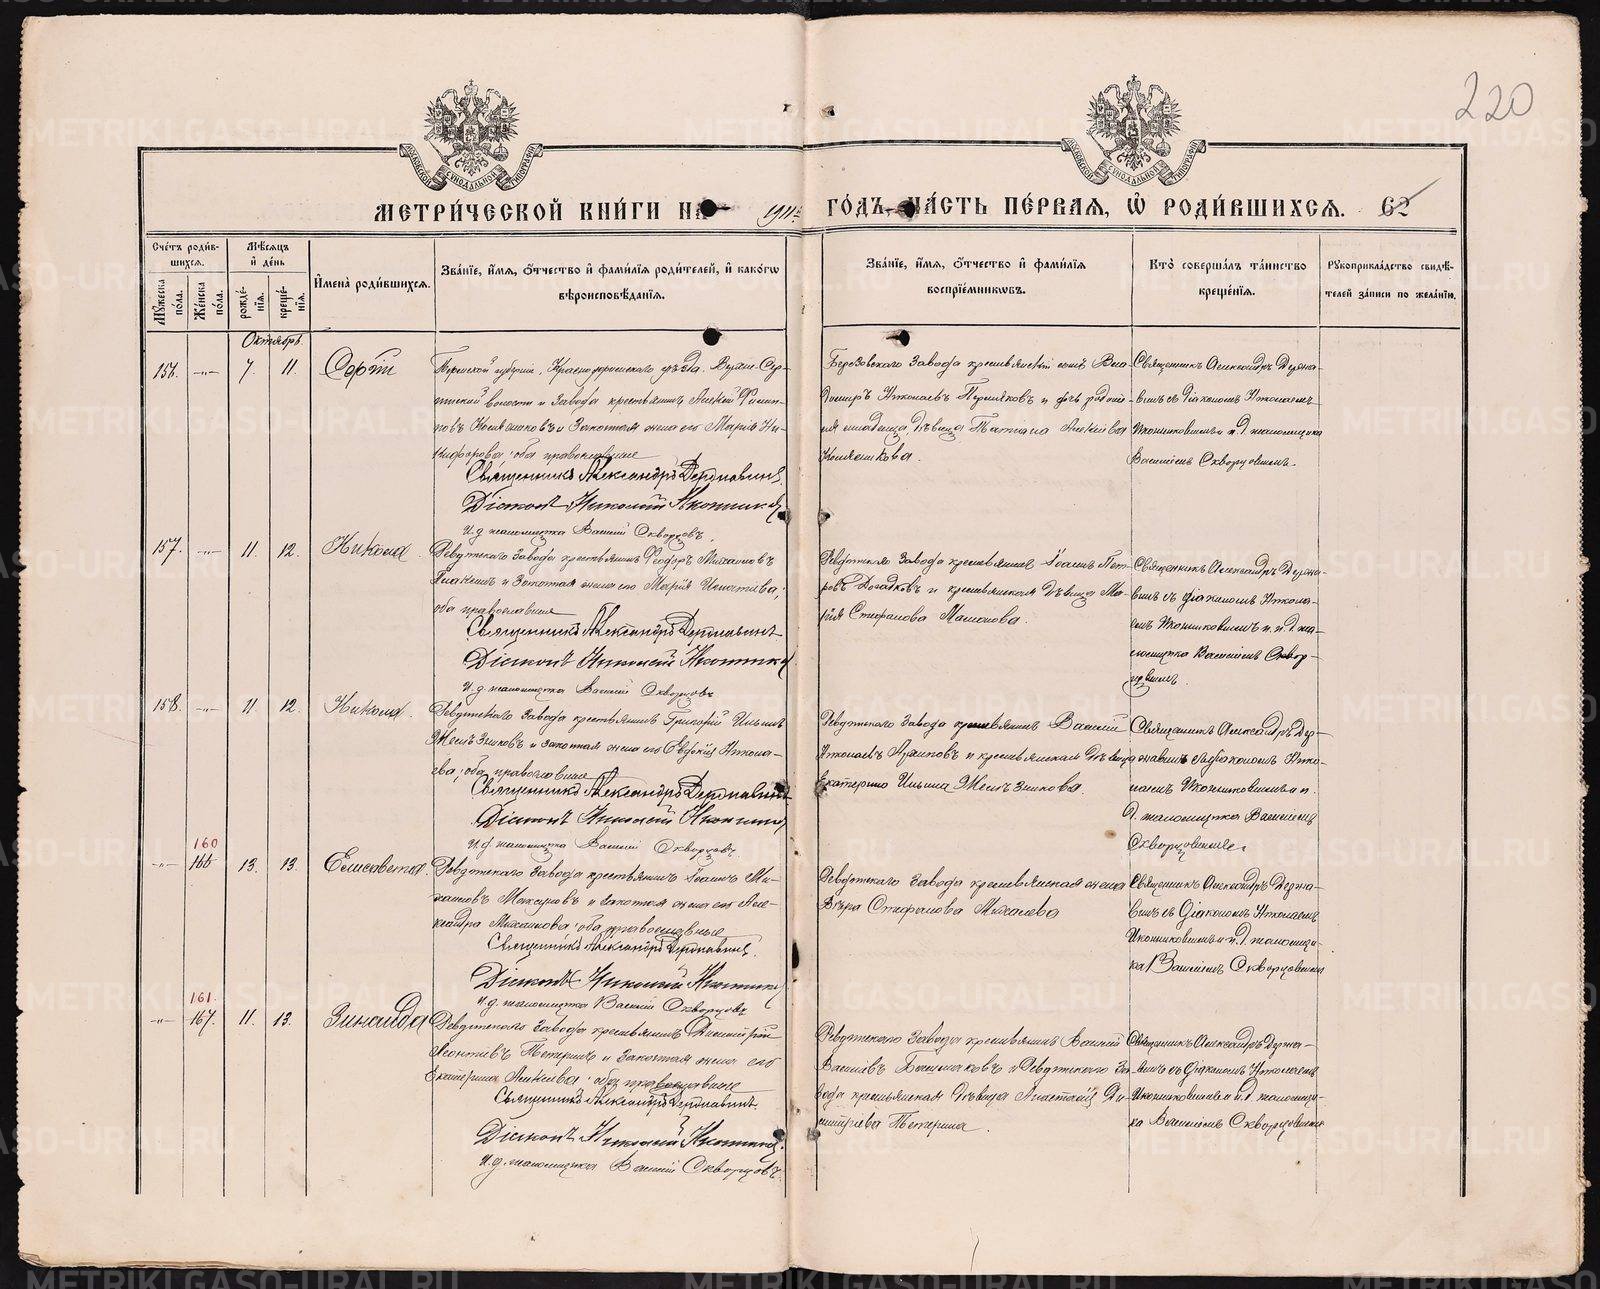 220
МОСКОВСКОЙ СѴНОДАЛЬНОЙ ТИПОГРАФІИ
МОСКОВСКОЙ СѴНОДАЛЬНОЙ ТИПОГРАФІИ
МЕТРИ́ЧЕСКОЙ КНИ́ГИ НА 1911 ГО́ДЪ, ЧА́СТЬ ПЕ́РВАЯ, Ѽ РОДИ́ВШИХСЯ. 62
Счетъ роди́в-
шихся.
Мꙋжеска по́ла.
Же́нска по́ла.
Мѣ́сяцъ и де́нь
рожде́-
нія.
креще́-
нія.
Имена̀ роди́вшихся.
Зва́ніе, и́мя, о́тчество и фами́лія роди́телей, и како́гѡ
вѣроисповѣ́данія.
Зва́ніе, и́мя, о́тчество и фами́лія
воспріе́мникѡвъ.
Кто̀ соверша́лъ та́инство
креще́нія.
Рꙋкоприкла́дство свидѣ́-
телей за́писи по жела́нію.
Октябрь
156. -„- 7. 11. Сергій
Пермской губерніи, Красноуфимскаго уѣзда,
волости и завода крестьянинъ Алексій Филип-
повъ и законная жена его Марія Ни-
кифорова, оба православные
Священникъ Александръ Державинъ.
Діаконъ Николай Иконников
И. д. псаломщика Василій Скворцовъ.
Березовскаго Завода крестьянскій сынъ Вла-
диміръ Николаевъ Пермяковъ и
дѣвица Татіана Алексіева
Священникъ Александръ Держа-
винъ съ діакономъ Николаемъ
Иконниковымъ и и. д. псаломщика
Василіемъ Скворцовымъ.
157. -„- 11. 12. Никола
Ревдинскаго завода крестьянинъ Феодоръ Михаиловъ
и законная жена его Марія Игнатіева,
оба православные
Священникъ Александръ Державинъ
Діаконъ Николай Иконников
И. д. псаломщика Василій Скворцовъ
Ревдинскаго завода крестьянинъ Іоаннъ Пет-
ровъ и крестьянская дѣвица Ма-
рія Стефанова Мамонова.
Священникъ Александръ Держа-
винъ съ діакономъ Никола-
емъ Иконниковымъ и и. д. пса-
ломщика Василіемъ Сквор-
цовымъ.
158. -„- 11 12. Никола.
Ревдинскаго завода крестьянинъ Григорій Ильинъ
и законная жена его Евдокія Никола-
ева, оба православные
Священникъ Александръ Державинъ
Діаконъ Николай Иконников
И. д. псаломщика Василій Скворцовъ
Ревдинскаго завода крестьянинъ Василій
Николаевъ Архиповъ и крестьянская дѣвица
Екатерина Ильина
Священникъ Александръ Дер-
жавинъ съ діакономъ Нико-
лаемъ Иконниковымъ и и.
д. псаломщика Василіемъ
Скворцовымъ.
160
-„- 166 13. 13. Елисавета.
Ревдинскаго завода крестьянинъ Іоаннъ Ми-
хаиловъ и законная жена его Але-
ксандра Михаилова, оба православные
Священникъ Александръ Державинъ.
Діаконъ Николай Иконников
И. д. псаломщика Василій Скворцовъ
Ревдинскаго завода крестьянская жена
Вѣра Стефанова
Священникъ Александръ Держа-
винъ съ Діакономъ Николаемъ
Иконниковымъ и и. д. псаломщи-
ка Василіемъ Скворцовымъ
161.
-„- 167. 11. 13. Зинаида
Ревдинскаго завода крестьянинъ Димитрій
Леонтіевъ Тетеринъ и законная жена его
Екатерина Алексіева, оба православные
Священникъ Александръ Державинъ.
Діаконъ Николай Иконников.
И. д. псаломщика Василій Скворцовъ.
Ревдинскаго завода крестьянинъ Василій
Васильевъ Башмаковъ и Ревдинскаго за-
вода крестьянская дѣвица Анастасія Ди-
митріева Тетерина.
Священникъ Александръ Держа-
винъ съ Діакономъ Николаемъ
Иконниковымъ и и. д. псаломщи-
ка Василіемъ Скворцовымъ